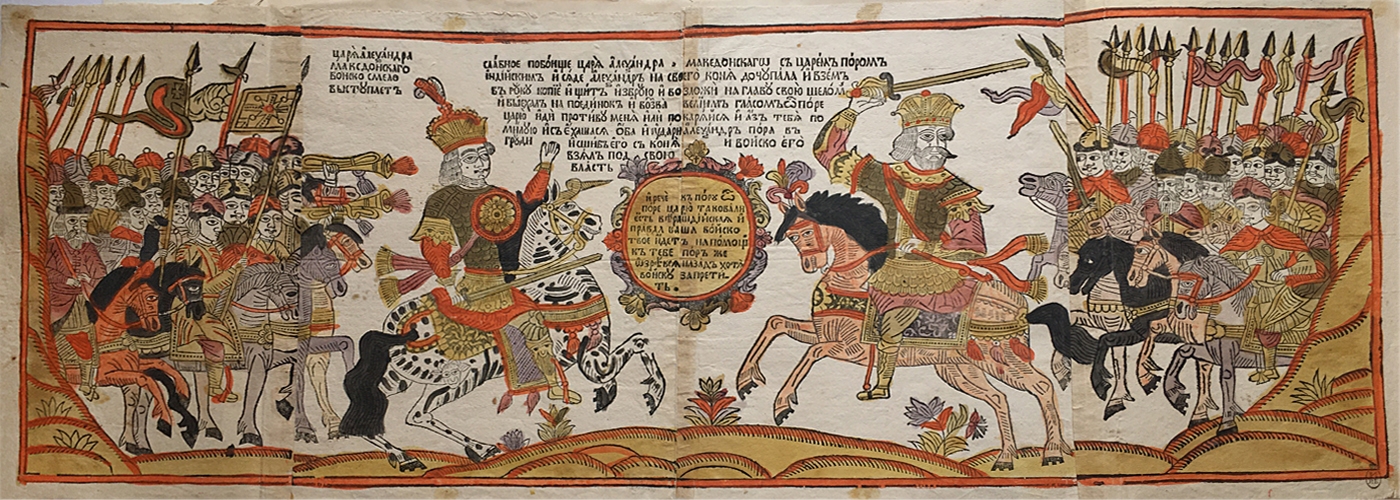 царѧ̀ алеѯа́ндра
македонскаго
воиско смело
выступаетъ
сла́вное побо́ище царѧ̀ алеѯа́ндра македонскагѡ съ царе́мъ по́ромъ
і҆нді́йскимъ и҆ сѧде алеѯандръ на своего конѧ̀ дочупала и҆ вземъ
въ руку копїе и҆ щитъ и҆ збрую и҆ возложи на главꙋ свою шелом
и҆ выѣхалъ на поединокъ и҆ возва велїимъ гласомъ ѿ поре
царю и҆ди противу меня и҆ли покарѧйсѧ и҆ азъ тебѧ по
милую и҆ съѣхашасѧ ѻба и҆ ꙋдари алеѯандръ пора въ
груди и҆ сшибъ его съ конѧ и войско его
взѧлъ под свою
власть
и҆ рече къ порꙋ ѽ
поре царю такова ли
есть вѣра индийская и҆
правда ваша войско
твое идетъ на помощь
къ тебе поръ же
ѡзрѣвсѧ назадъ хотѧ
войску запрети
ть